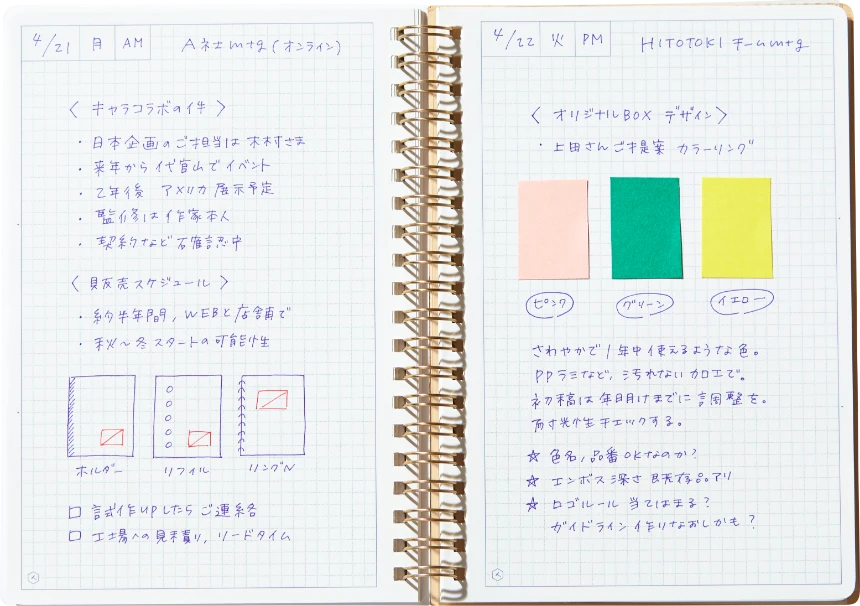 4/21 月 AM A社mtg(オンライン)
〈 キャラコラボの件 〉
・日本企画のご担当は木村さま
・来年から代官山でイベント
・2年後 アメリカ展示予定
・監修は作家本人
・契約など確認中
〈 販売スケジュール 〉
・約半年間, WEBと店舗で
・秋〜冬スタートの可能性
ホルダー リフィル リングN
□ 試作upしたらご連絡
□ 工場への見積り, リードタイム
4/22 火 PM HITOTOKI チームmtg
〈 オリジナルBOX デザイン 〉
・上田さんご提案 カラーリング
ピンク グリーン イエロー
さわやかで1年中使えるような色。
PPラミなど、汚れない加工で。
初稿は年明けまでに調整を。
耐光性チェックする。
☆ 色名, 品番OKなのか?
☆ エンボス深さ 既存品アリ
☆ ロゴルール 当てはまる?
ガイドライン作りなおしかも?